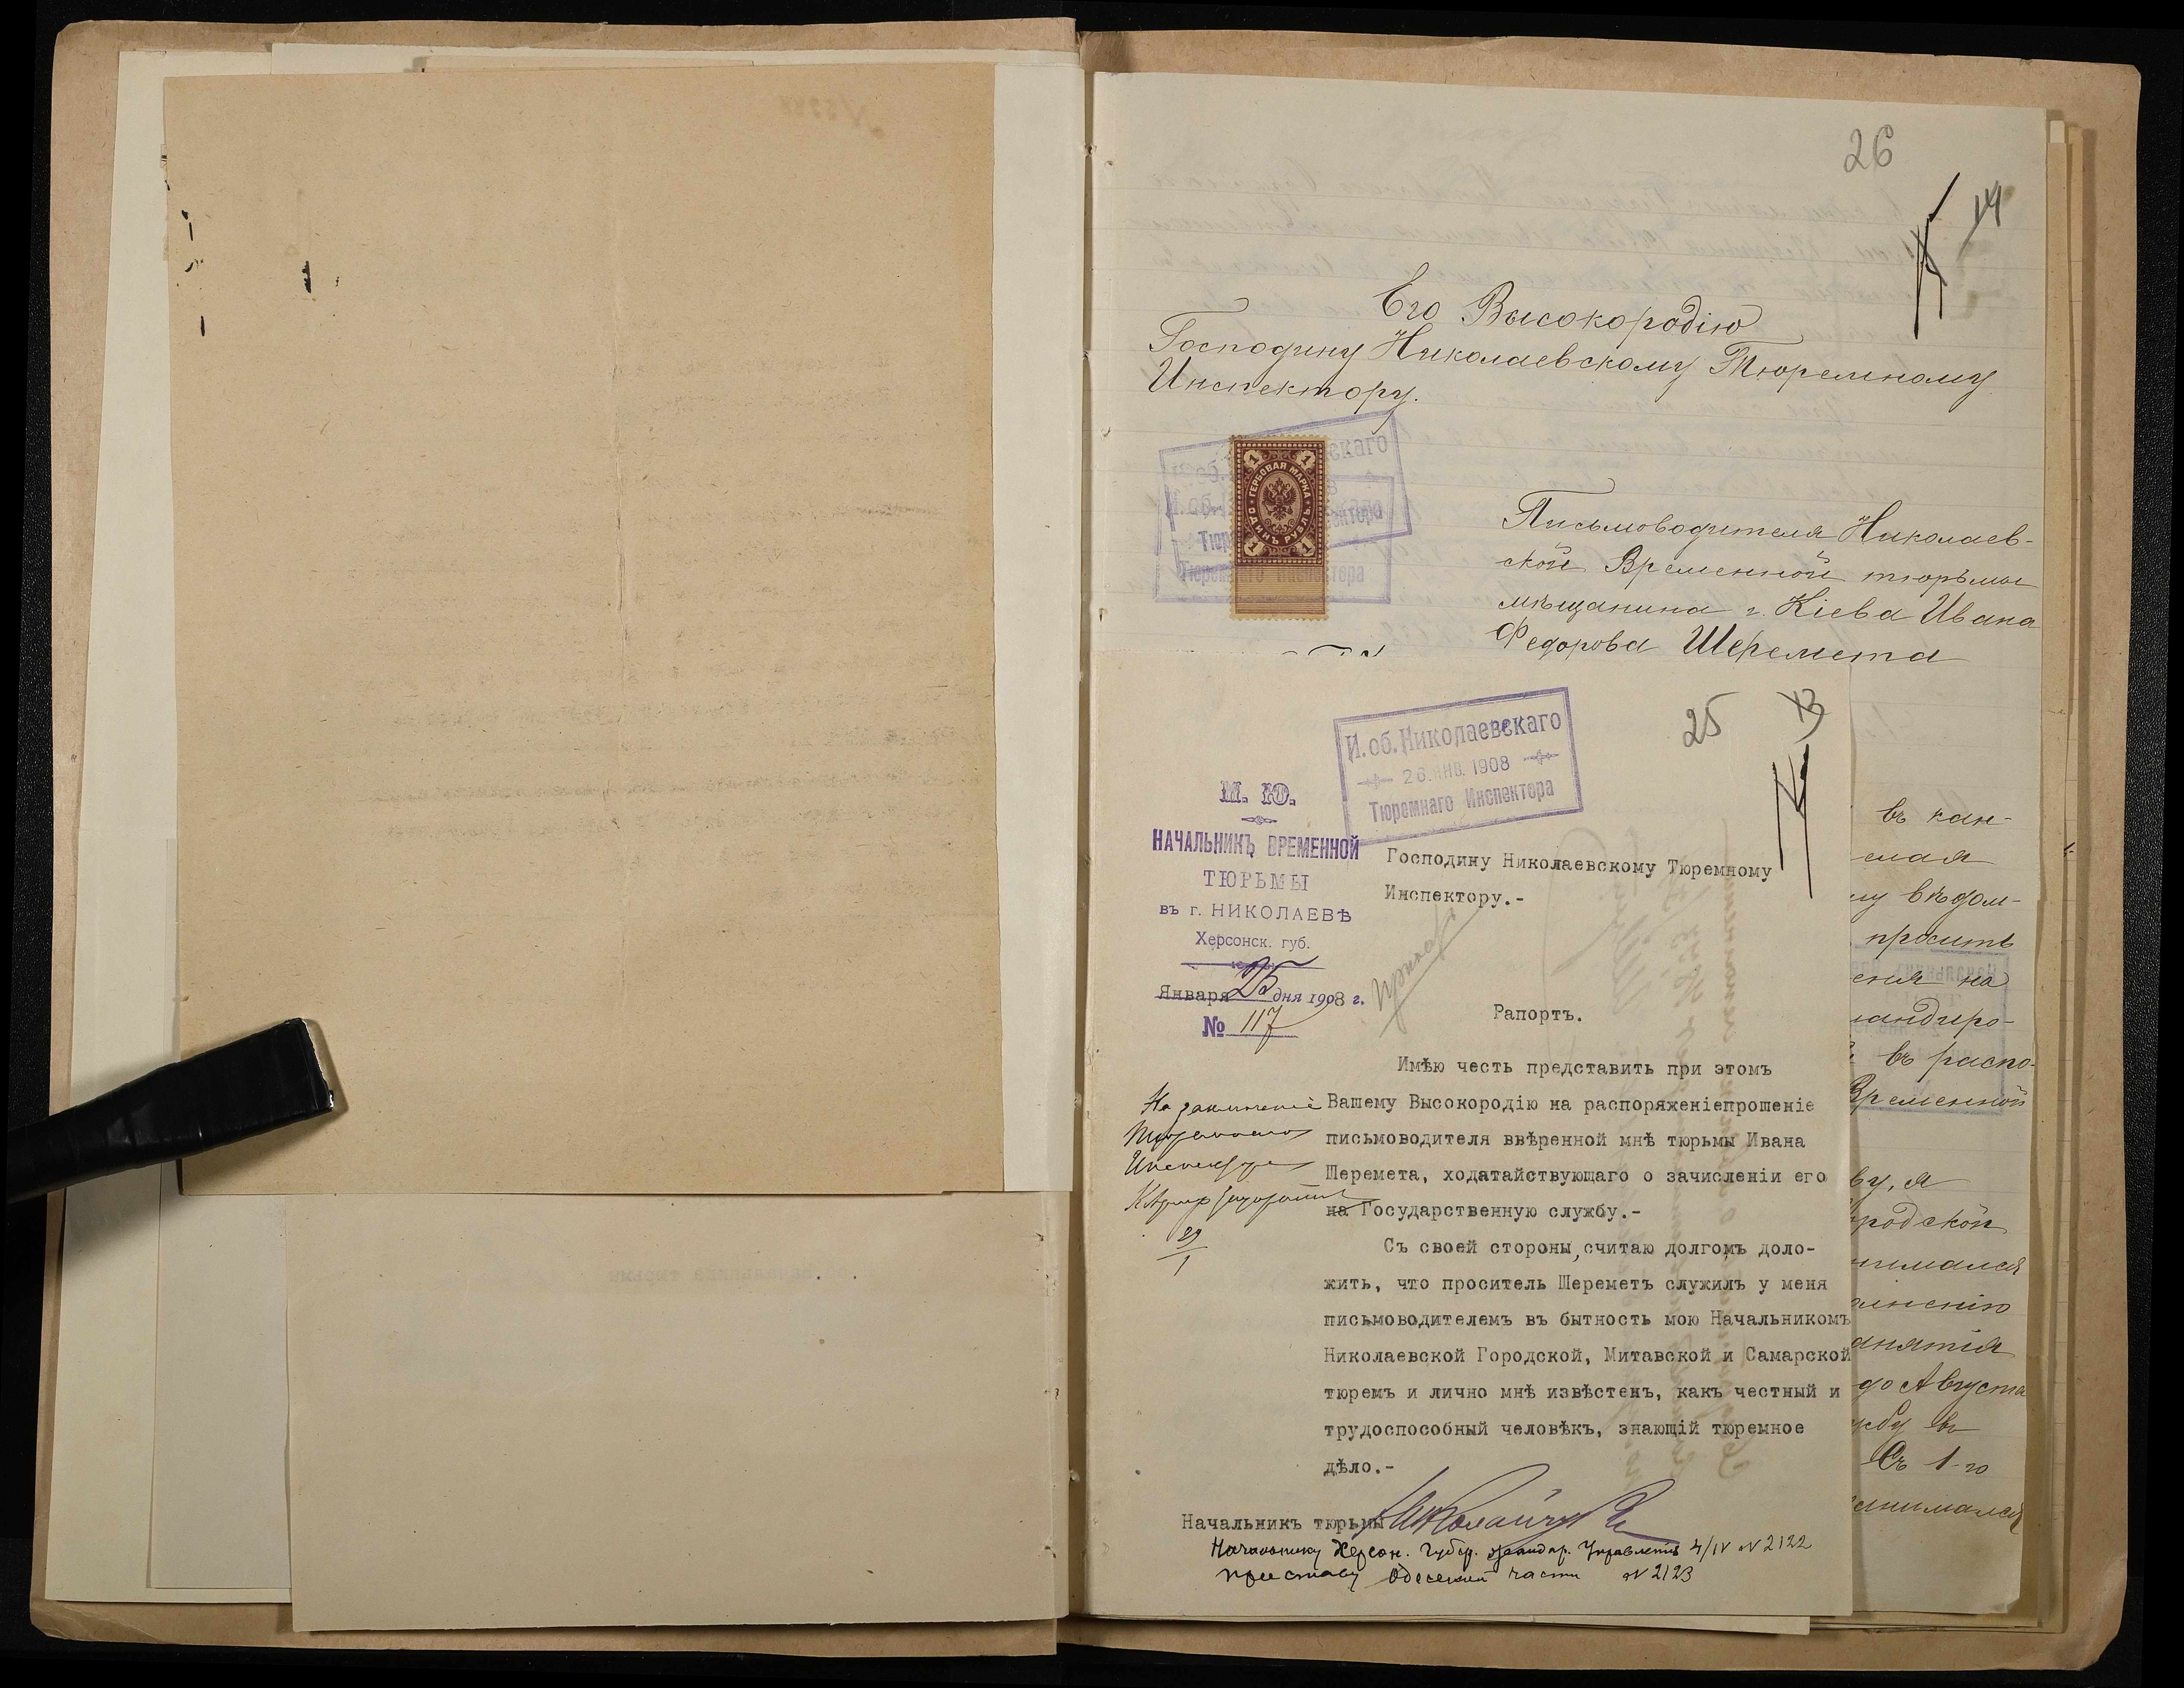 26
14
Его Высокородію
Господину Николаевскому Тюремному
Инспектору.
скаго
И. об.
ектора
Тюремнаго Инспектора
1 1
ГЕРБОВАЯ МАРКА
ОДИНЪ РУБЛЬ
1 1
Письмоводителя Николаев-
ской Временной тюрьмы
мѣщанина г. Кіева Ивана
Федорова Шеремета
25
13
И. об. Николаевскаго
26. ЯНВ. 1908
Тюремнаго Инспектора
М. Ю.
НАЧАЛЬНИКЪ ВРЕМЕННОЙ
ТЮРЬМЫ
въ г. НИКОЛАЕВѢ
Херсонск. губ.
Января 25 дня 1908 г.
№ 117
Господину Николаевскому Тюремному
Инспектору.-
Рапортъ.
Имѣю честь представить при этомъ
Вашему Высокородію на распоряженіепрошеніе
письмоводителя ввѣренной мнѣ тюрьмы Ивана
Шеремета, ходатайствующаго о зачисленіи его
на Государственную службу.-
Съ своей стороны,считаю долгомъ доло-
жить, что проситель Шереметъ служилъ у меня
письмоводителемъ въ бытность мою Начальникомъ
Николаевской Городской, Митавской и Самарской
тюремъ и лично мнѣ извѣстенъ, какъ честный и
трудоспособный человѣкъ, знающій тюремное
дѣло.-
Начальникъ тюрьмы
На заключеніе
Инспектора
29
1
Начальнику Херсон. Губер. жандар. Управленія 4/IV № 2122
приставу Одесской части № 2123
въ кан-
елая
му вѣдом-
просить
енія на
мандиро-
въ распо-
Временной
ву, я
ородской
нимался
олненію
анятія
до Августа
жбу въ
Съ 1-го
занимался